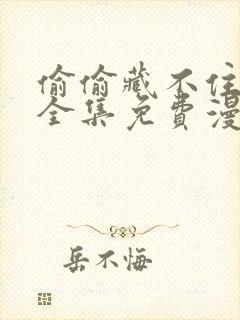 偷偷藏不住
全集免費漫
岳不悔